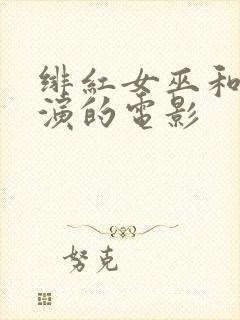 緋紅女巫和
演的電影
努克